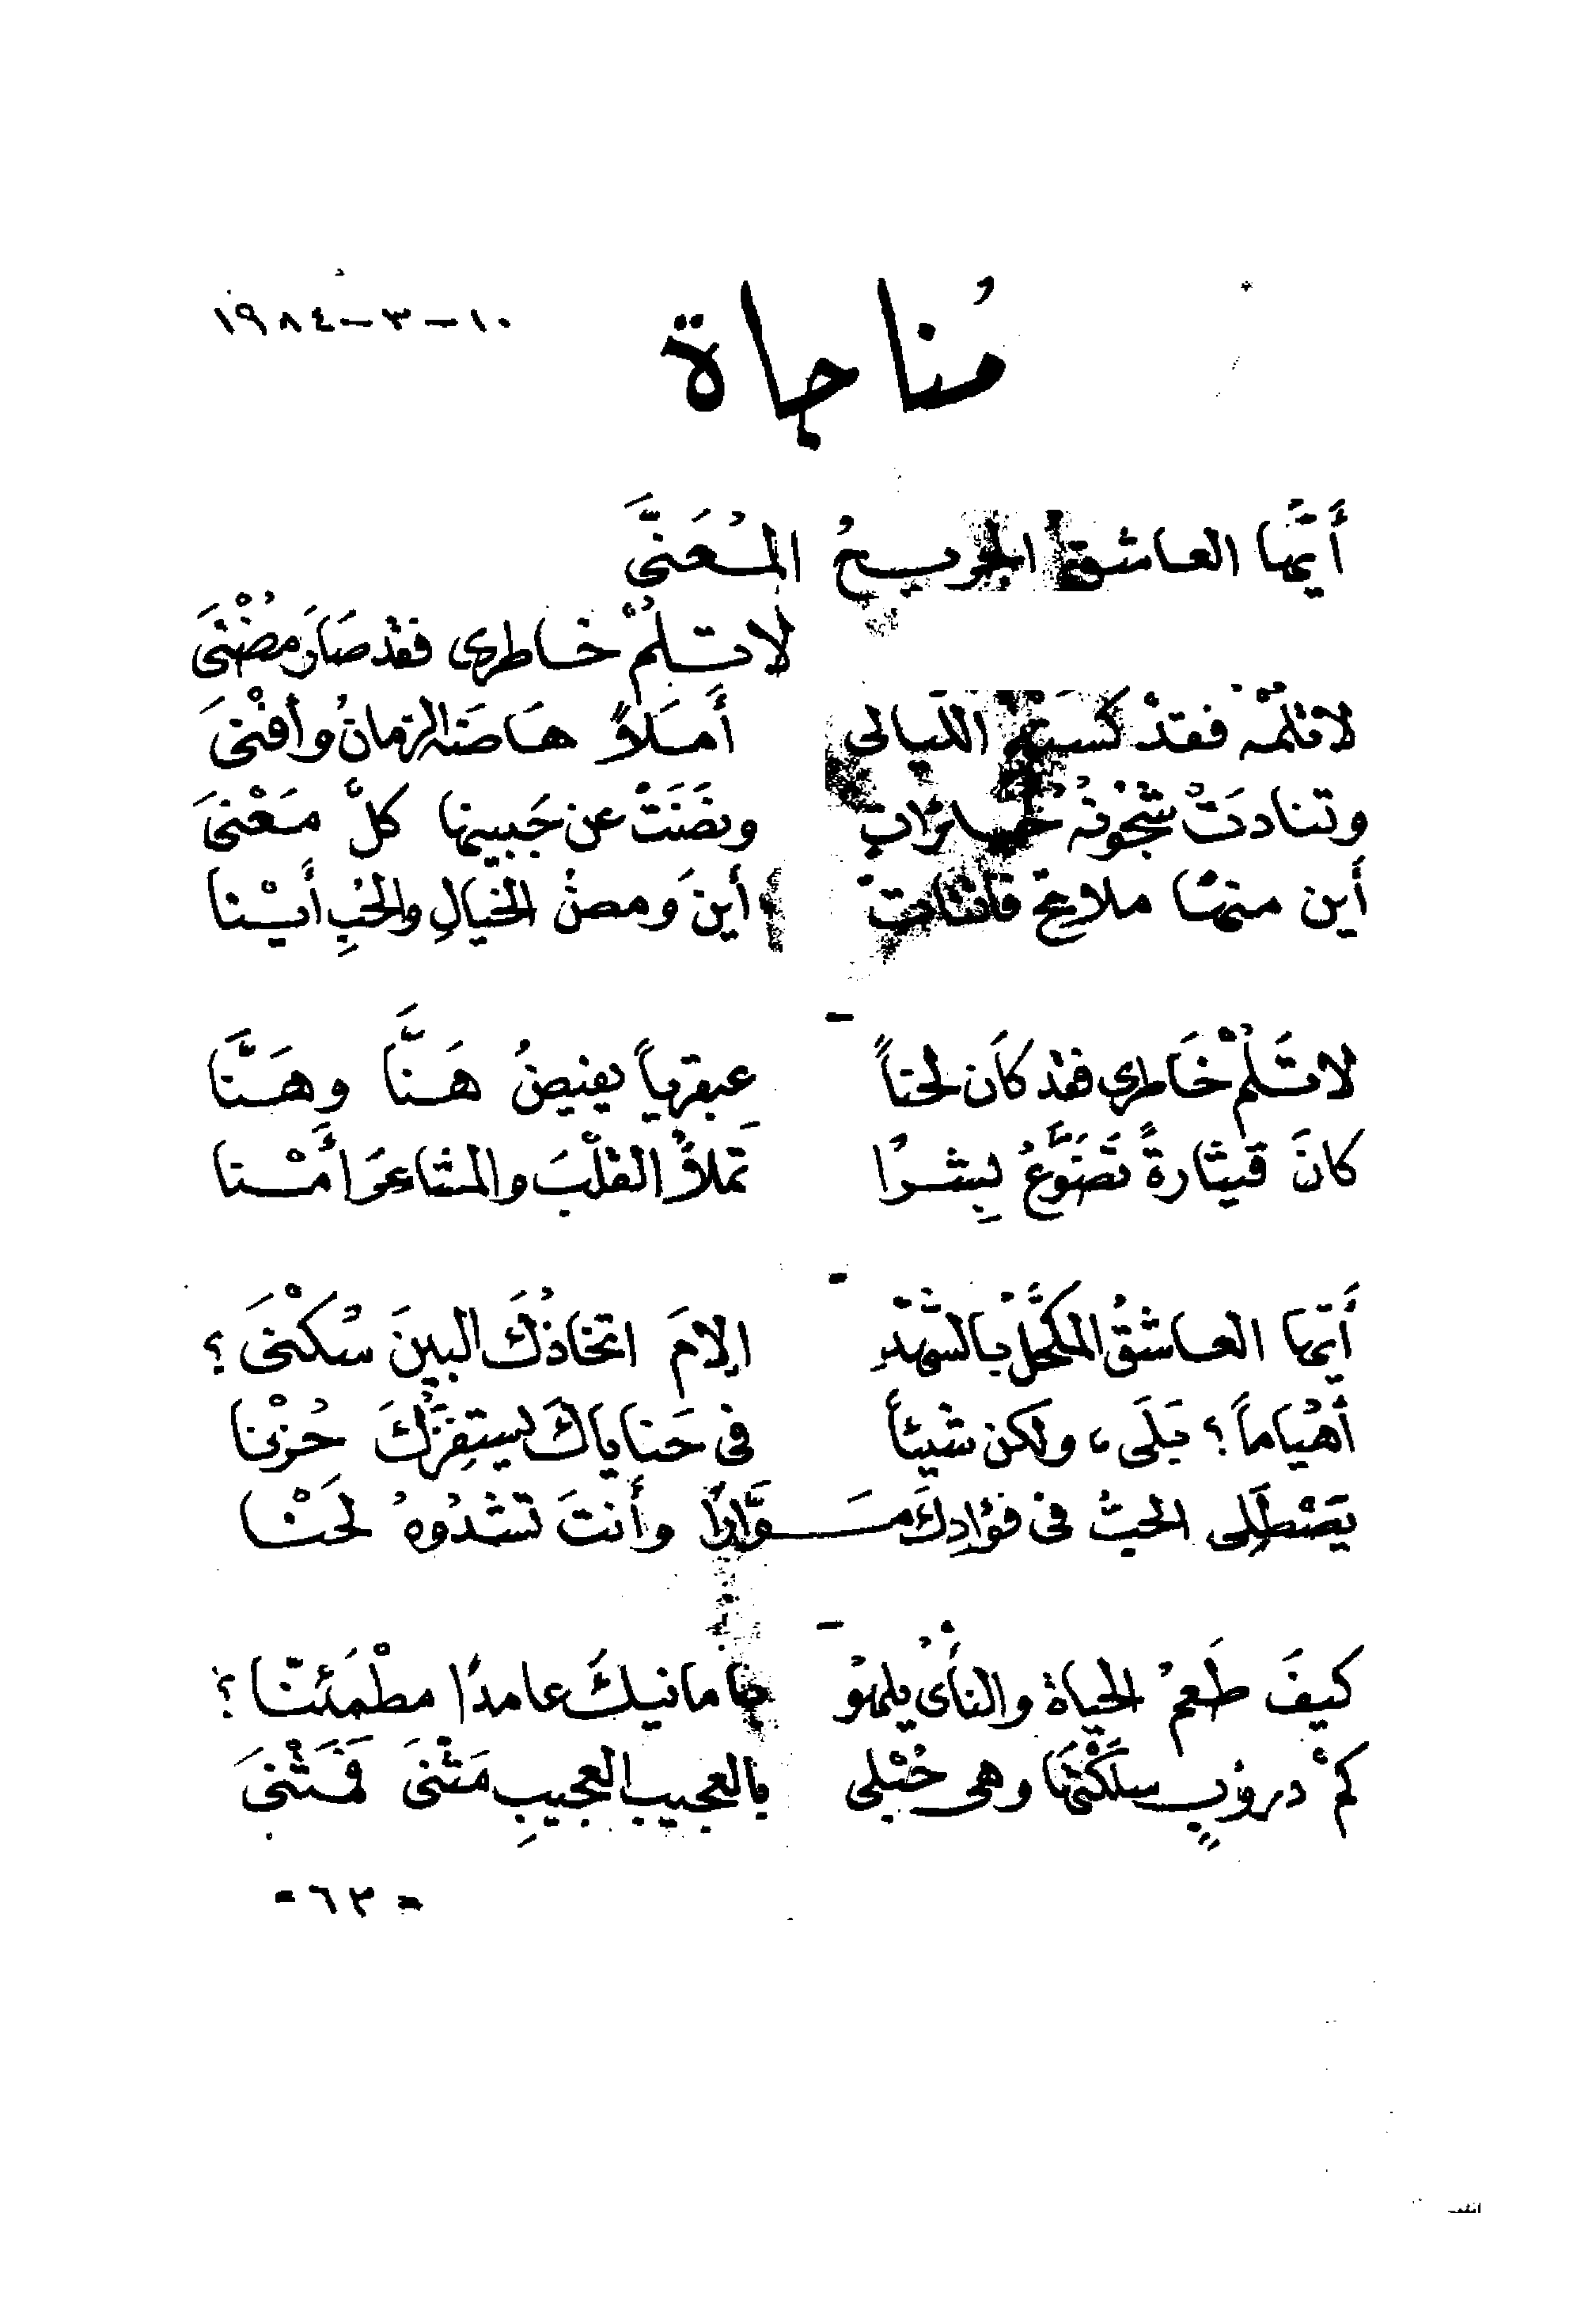 مُناجاة
١٠-٣-١٩٨٤
أَيُّها العاشقُ الجريحُ المُعَنَّى
لا تلُمْ خاطرى فقد صَارَ مُضْنَى
لا تلُمْه فقدْ كسته الليالى أَمَلاً هَاضَه الزمانُ وأفْنَى
وتنادتْ شُجُونُه حائراتٍ ونضَتْ عن جَبينها كلَّ مَعْنَى
أين منها ملامحٌ فاتناتٌ أينَ ومضُ الخيالِ والحُبِ أيْنا
لا تَلُمْ خَاطرى فقد كَان لحناً عبقرياً يفيضُ هَنَّا وهَنَّا
كانَ قيثارةً تَضَوَّعُ بِشرًا تملأُ القلْبَ والمشاعرَ أَمْنا
أَيّها العاشقُ المكحَّلُ بالسُّهْدِ إلامَ اتخاذُكَ البينَ سُكْنَى؟
أهُياماً؟ بَلَى، ولكن شيئاً فى حَناياكَ يستفِزُّكَ حُزْنا
يَصْطَلِى الحبُّ فى فؤادِكَ مَوَّارًا وأَنتَ تشدُوهُ لَحْنا
كيفَ طَعمُ الحياة والنأىُ يلهوُ بأمانيكَ عامدًا مطْمَئنّا؟
كمْ دروبٍ سلَكْتَها وهى حُبْلى بالعجيب العجيبِ مَثْنَى فَمَثْنَى
-٦٣-